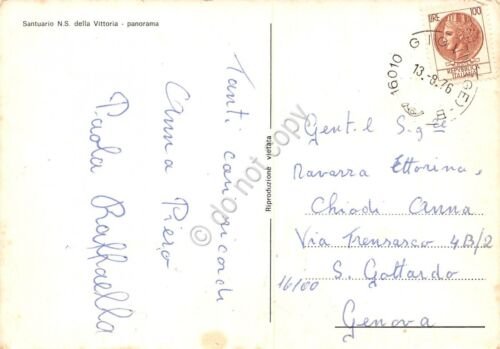 Santuario N.S. della Vittoria - panorama
Tanti cari ricordi
Anna Piero
Paola Raffaella
Riproduzione vietata
©do not copy
LIRE 100
REPVBBLICA
ITALIANA
16010 GIO (GE)
13.8.76
Gent.l Sig.re
Navarra Ettorina
Chiodi Anna
Via Trensasco 4B/2
16100 S. Gottardo
Genova